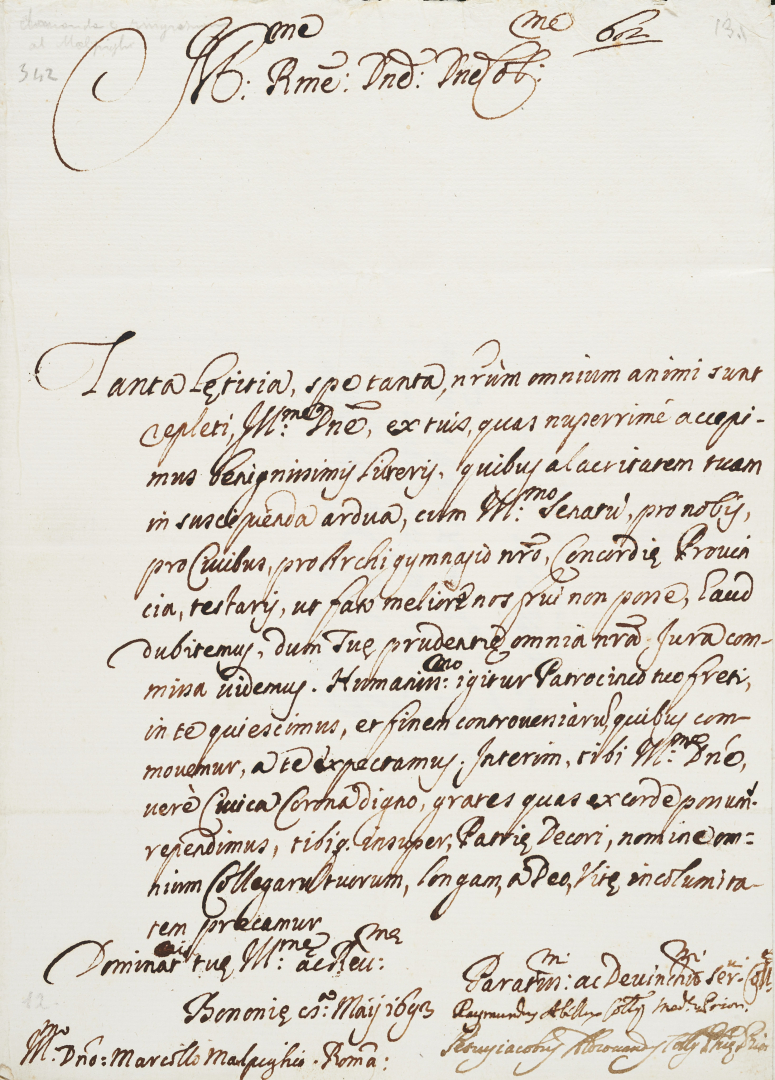 me me 602 135
342
Ill: Rmē: Dnē: Dnē Ob:
Tanta Lętitia, spe tanta, nrūm omnium animi sunt
repleti, Ill:me Dnē, ex tuis, quas nuperrimè accepi-
mus benignissimis Literis, quibus alacritatem tuam
in suscipienda ardua, cum Ill:mo Senatu, pro nobis,
pro Civibus, pro Archigymnasio nrō, Concordię Provin
cia, testaris, ut fato meliore nos frui non posse, haud
dubitemus, dum Tuę prudentię omnia nrā Jura com-
missa videmus. Humaniss:mo igitur Patrocinio tuo freti,
in te quiescimus, et finem controversiarū, quibus com-
movemur, a te expectamus. Interim, tibi Ill:me Dnē,
verè Civica Corona digno, grates quas ex corde possum9
rependimus, tibiq. insuper, Patrię Decori, nomine om=
nium Collegarū tuorum, longam, a Deo, Vitę incolumita-
tem precamur
Dominat.nis tuę Ill:mę ac Reu:mę
Paratiss:mi ac Devinctiss:mi Ser.ri Coll.ę
Bononię Maij 1693
Raymundus
Ill:mo Dnō: Marcello Malpighio. Roma:
12.